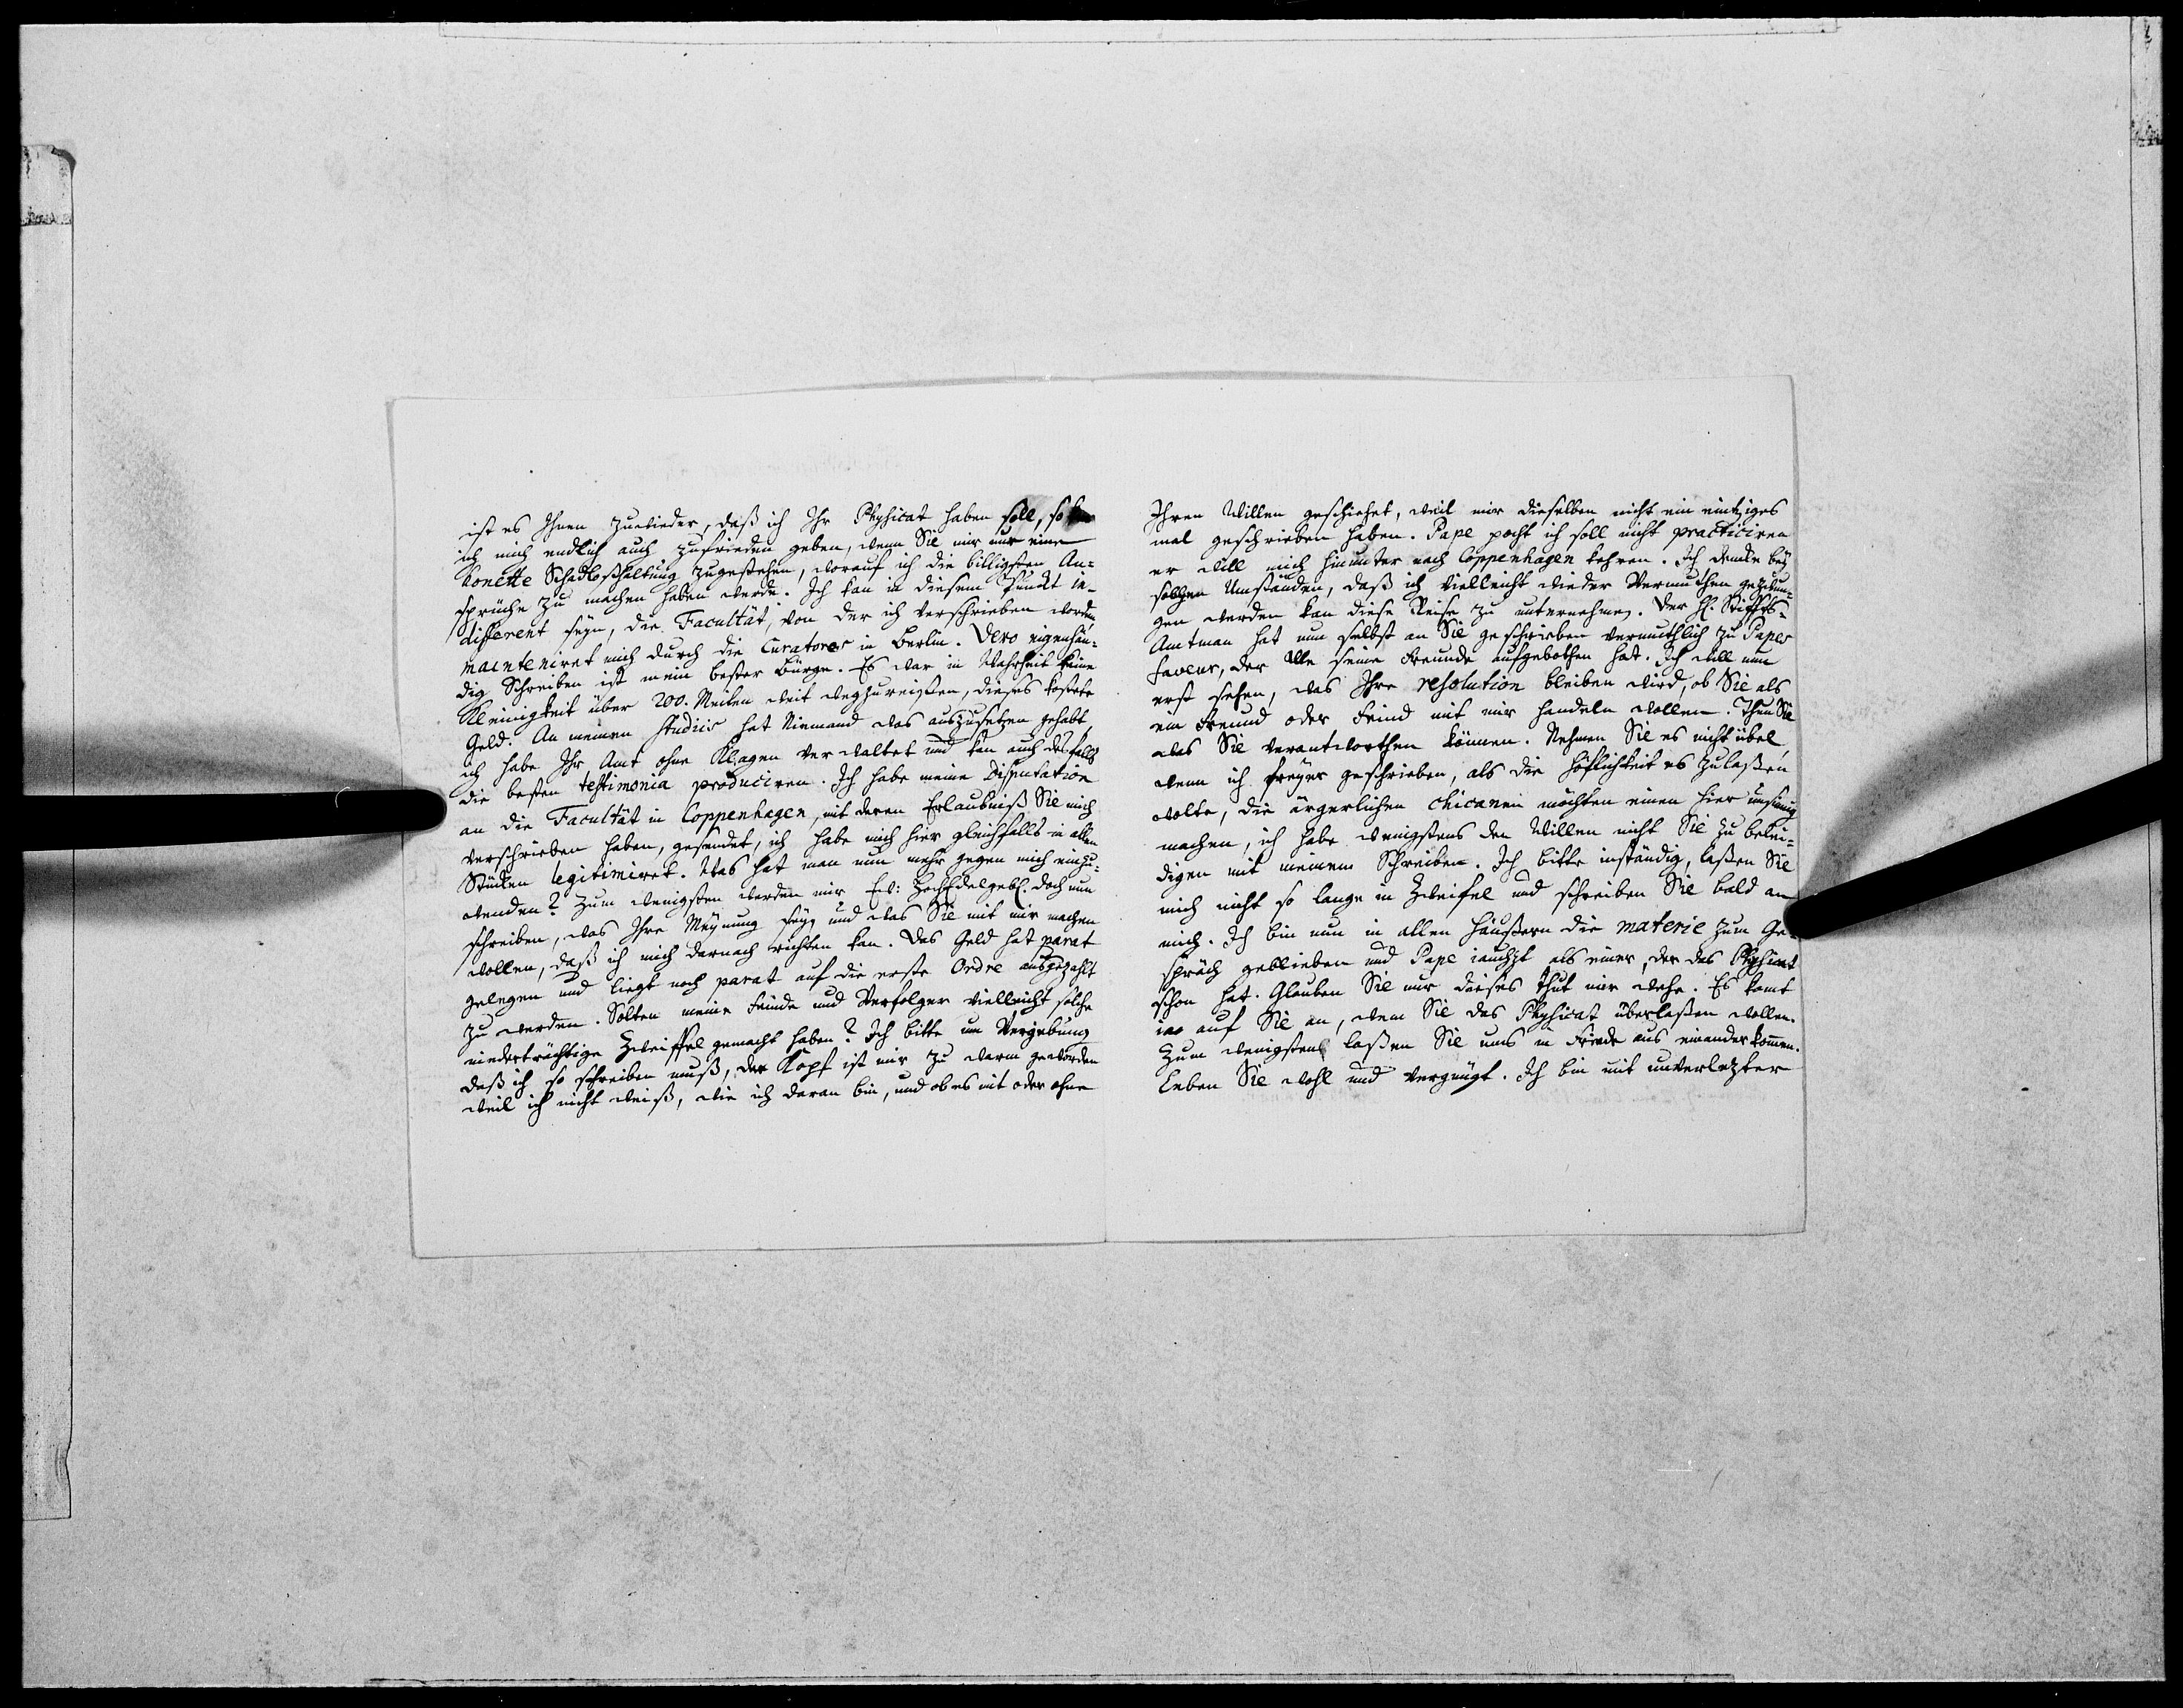 ist es Ihnen zuwieder, daß ich Ihr Physicat haben soll, so
ich mich endlich auch zufrieden geben, wenn Sie mir nur eine
honette Schadloßhaltung zugestehen, worauf ich die billigsten An-
sprüche zu machen haben werde. Ich kan in diesem Punckt in-
different seyn, die Facultät, von der ich verschrieben worden
mainteniret mich durch die Curatores in Berlin. Dero eigenhän-
dig Schreiben ist mein bester Bürge. Es war in Wahrheit keine
Kleinigkeit über 200. Meilen weit wegzureißen, dieses kostete
Geld. An meinen studiis hat Niemand was auszusetzen gehabt,
ich habe Ihr Amt ohne Klagen verwaltet und kan auch desfalls
die besten testimonia produciren. Ich habe meine Disputation
an die Facultät in Coppenhagen, mit deren Erlaubniß Sie mich
verschrieben haben, gesendet, ich habe mich hier gleichfalls in allen
Stücken legitimiret. Was hat man nun mehr gegen mich einzu-
wenden? Zum wenigsten werden mir Ew: HochEdelgebl. doch nun
schreiben, was Ihre Meynung sey, und was Sie mit mir machen
wollen, daß ich mich darnach richten kan. Das Geld hat parat
gelegen und liegt noch parat auf die erste Ordre ausgezahlt
zu werden. Solten meine Feinde und Verfolger vielleicht solche
niederträchtige Zweiffel gemacht haben? Ich bitte um Vergebung
daß ich so schreiben muß, der Kopf ist mir zu warm geworden
weil ich nicht weiß, wie ich daran bin, und ob es mit oder ohne
Ihren Willen geschiehet, weil mir dieselben nicht ein eintziges
mal geschrieben haben. Pape pocht ich soll nicht practiciren
er will mich hinunter nach Coppenhagen kehren. Ich dencke bey
solchen Umständen, daß ich vielleicht wieder Vermuthen gezwun-
gen werden kan diese Reise zu unternehmen. Der H. Stiffts-
Amtman hat nun selbst an Sie geschrieben vermuthlich zu Papes
faveur, der alle seine Freunde aufgebothen hat. Ich will nun
erst sehen, was Ihre resolution bleiben wird, ob Sie als
ein Freund oder Feind mit mir handeln wollen. Thun Sie
was Sie verantworthen können. Nehmen Sie es nicht übel,
wenn ich freyer geschrieben, als die Höflichkeit es zulaßen
wolte, die ärgerlichen chicanen möchten einen hier unsinnig
machen, ich habe wenigstens den Willen nicht Sie zu belei-
digen mit meinem Schreiben. Ich bitte inständig, laßen Sie
mich nicht so lange in Zweifel und schreiben Sie bald an
mich. Ich bin nun in allen Häußern die materie zum Ge-
spräch geblieben und Pape jauchzt als einer, der das Physicat
schon hat. Glauben Sie mir dieses thut mir wehe. Es komt
ja auf Sie an, wem Sie das Physicat überlaßen wollen.
Zum wenigsten laßen Sie uns in Friede aus einander kommen.
Leben Sie wohl und vergnügt. Ich bin mit unverletzter